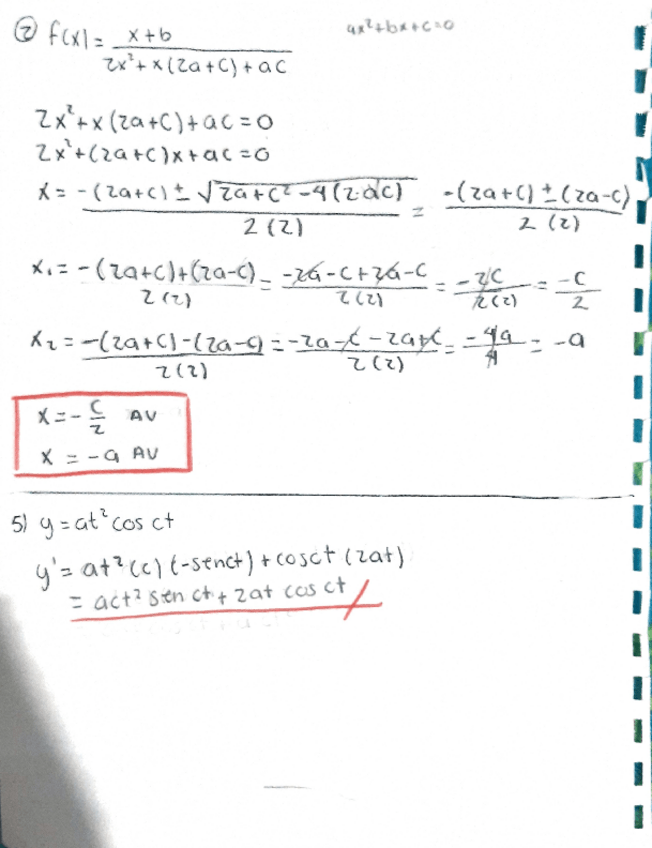 ② f(x) = x+b / 2x²+x(2a+c)+ac
ax²+bx+c=0
2x²+x(2a+c)+ac=0
2x²+(2a+c)x+ac=0
x = -(2a+c) ± √2a+c²-4(2·ac) / 2(2) = -(2a+c)±(2a-c) / 2(2)
x₁ = -(2a+c)+(2a-c) / 2(2) = -2a-c+2a-c / 2(2) = -2c / 2(2) = -c / 2
x₂ = -(2a+c)-(2a-c) / 2(2) = -2a-c-2a+c / 2(2) = -4a / 4 = -a
x = -c/2 AV
x = -a AV
5) y = at² cos ct
y' = at²(c)(-senct)+cosct(2at)
= act² sen ct + 2at cos ct